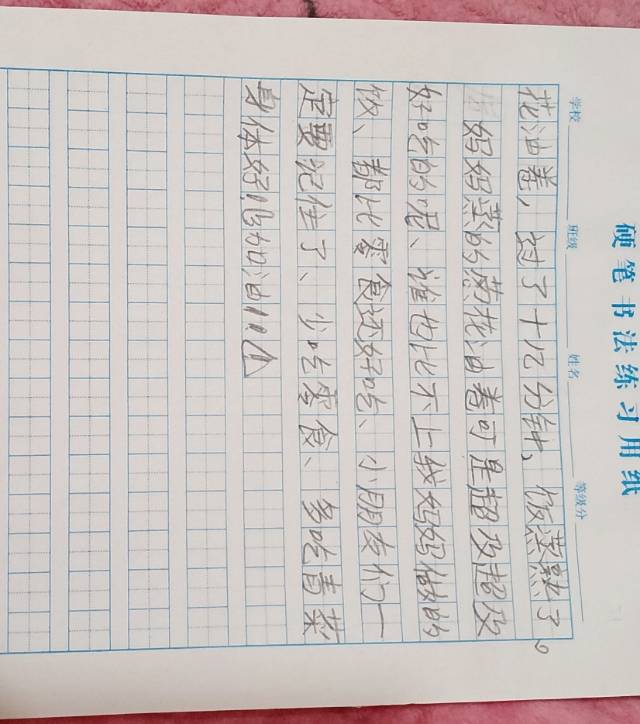 硬笔书法练习用纸
学校 班级 姓名 等级分
花油卷，过了十亿分钟，饭蒸熟了。
妈妈蒸的葱花油卷可是超及超及
好吃的呢、谁也比不上我妈妈做的
饭、都比零食还好吃、小朋友们一
定要记住了、少吃零食、多吃青菜
身体好！加油！！